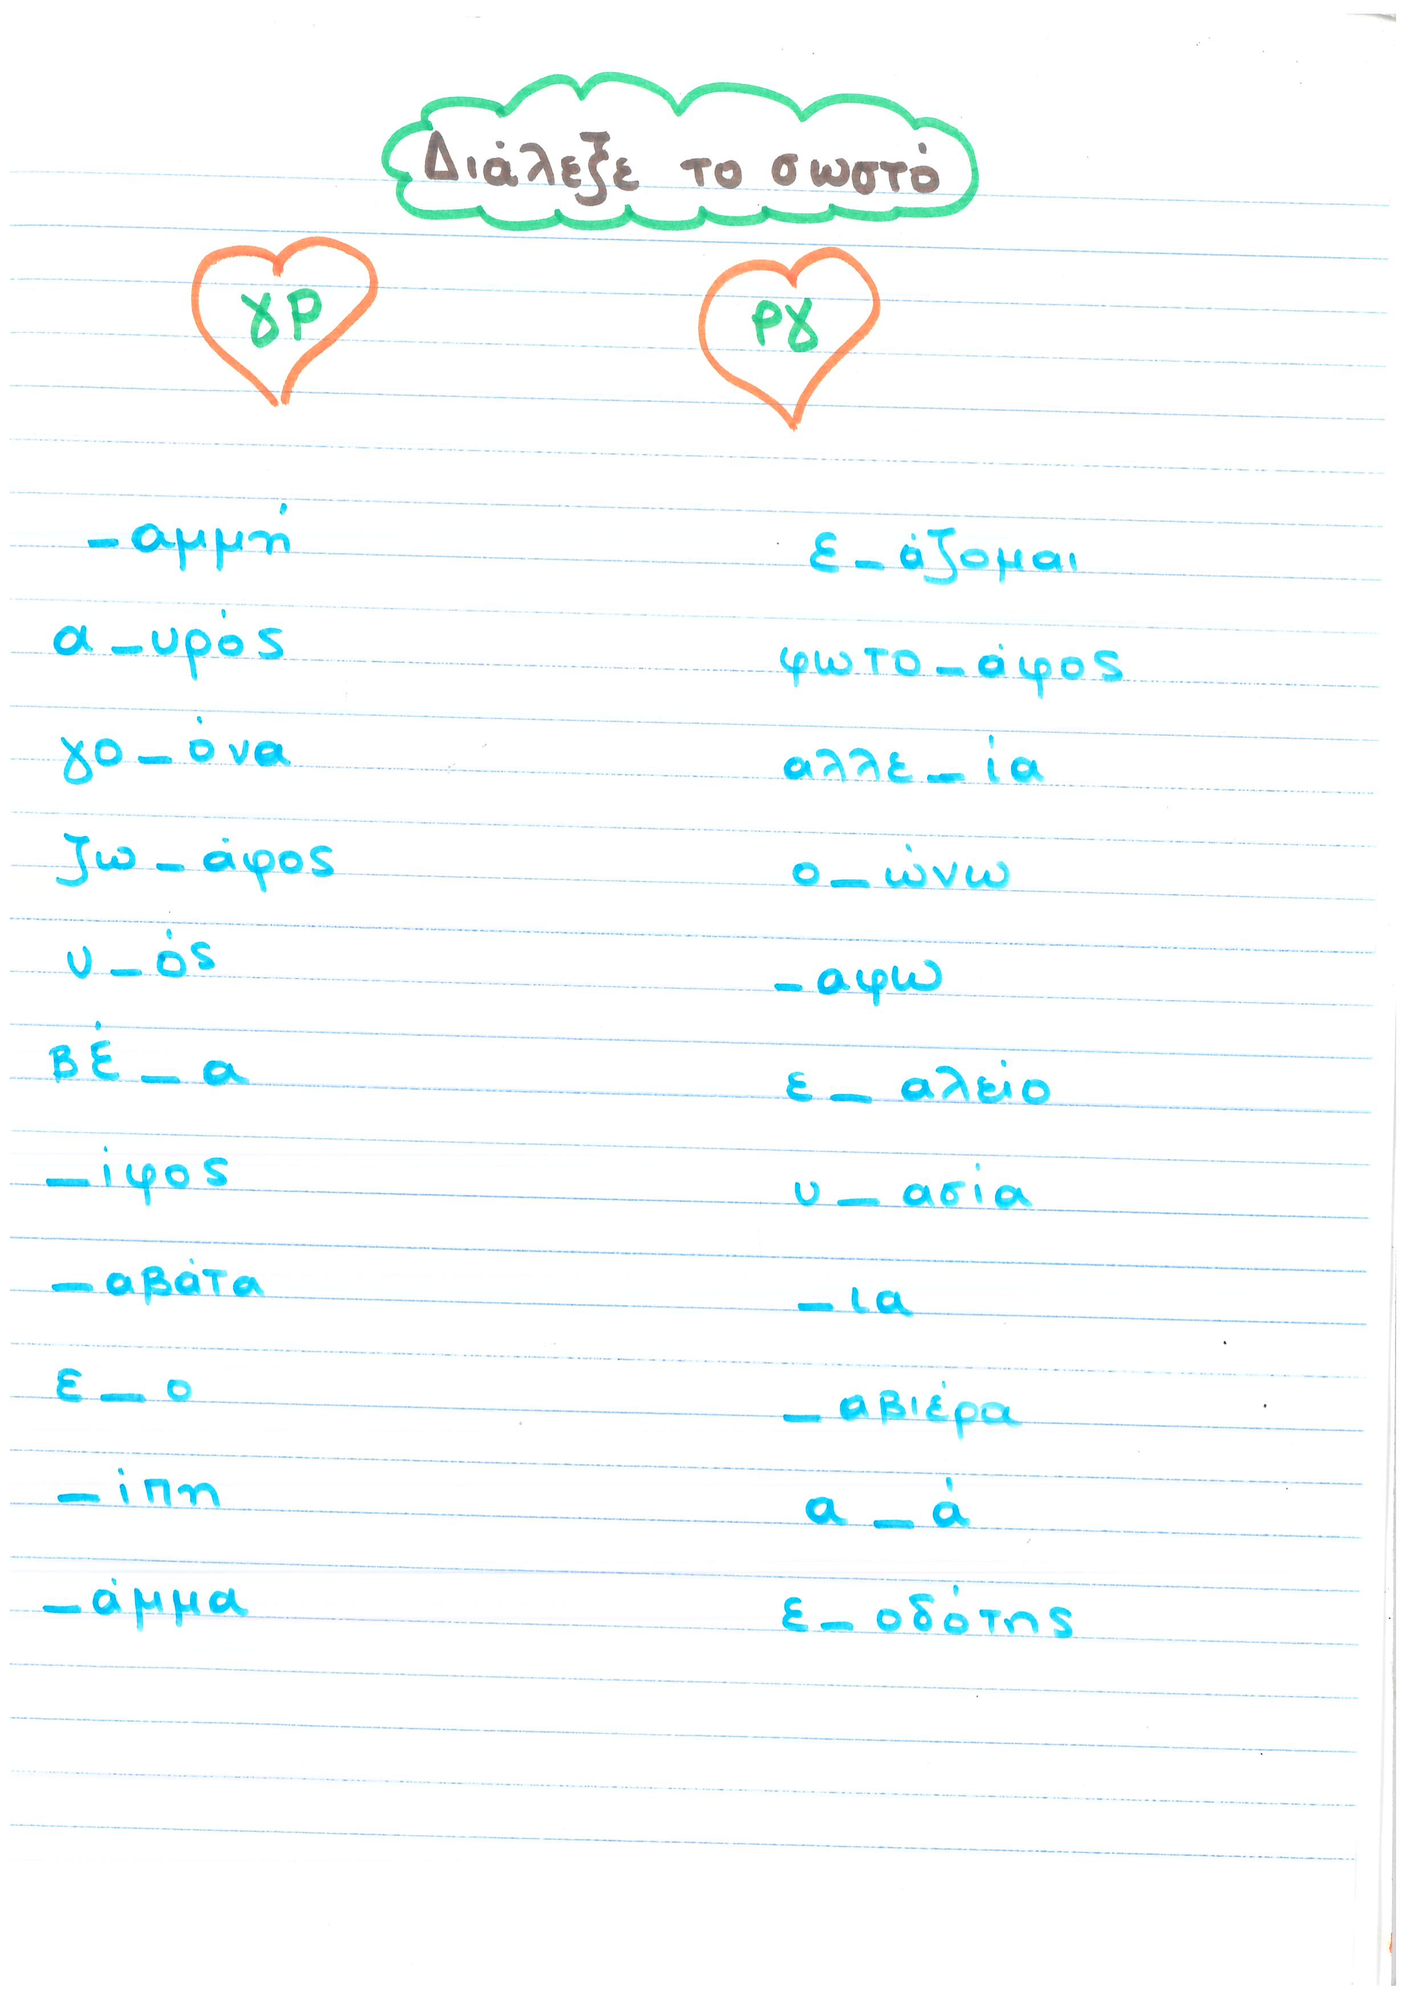 Διάλεξε το σωστό
γρ ργ
_αμμή ε_άζομαι
α_υρός φωτο_άφος
γο_όνα αλλε_ία
ζω_άφος ο_ώνω
υ_ός _αφω
βέ_α ε_αλείο
_ίφος υ_ασία
_αβάτα _ια
ε_ο _αβιέρα
_ίπη α_ά
_άμμα ε_οδότης